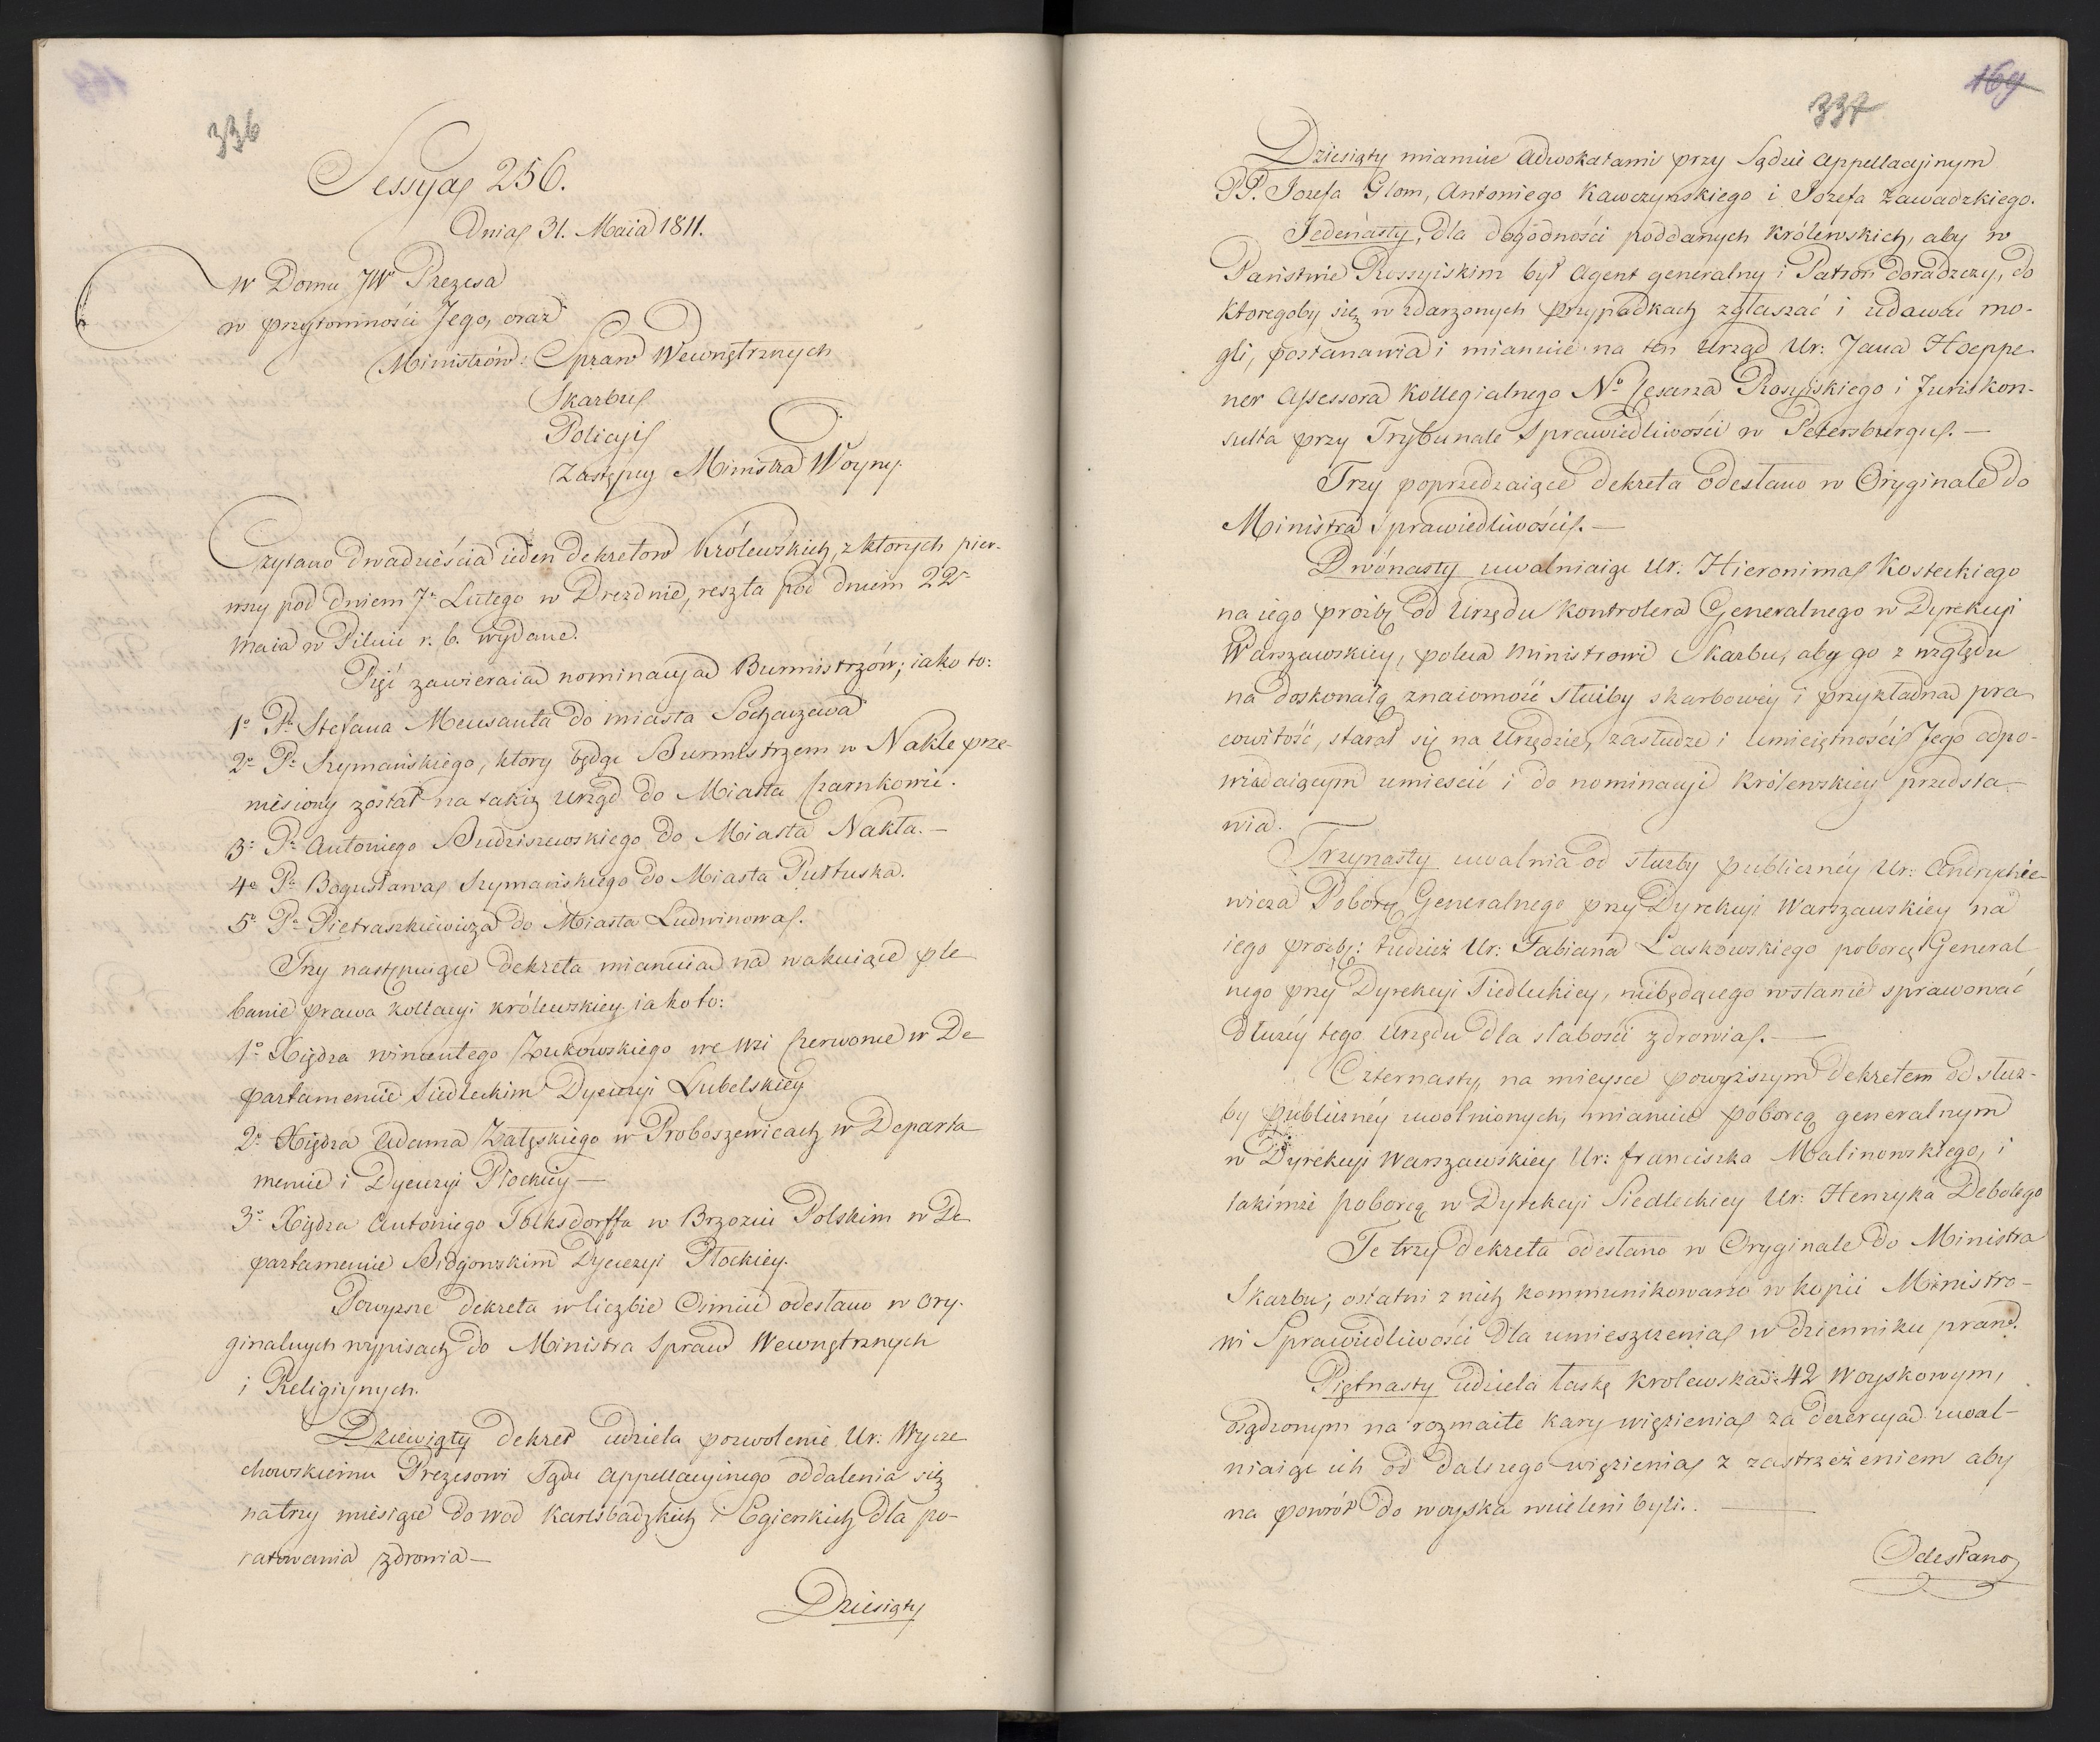 336
Sessya 256.
Dnia 31. Maia 1811.
w Domu JW Prezesa
w przytomności Jego, oraz
Ministrów: Spraw Wewnętrznych
Skarbu
Policyi
Zastępcy Ministra Woyny.
Czytano dwadzieścia ieden dekretów Królewskich, z których pier-
wszy pod dniem 7. Lutego w Dreznie, reszta pod dniem 22
Maia w Pilnic r. b. wydane.
Pięć zawieraią nominacyą Burmistrzów; iako to:
1o Pa Stefana Meusanta do miasta Sochaczewa
2o Pa Szymańskiego, ktory będąc Burmistrzem w Nakle prze-
niesiony został na takiż urząd do Miasta Czarnkowic.
3o Pa Antoniego Budziszewskiego do Miasta Nakła. —
4o Pa Bogusława Szymańskiego do Miasta Pułtuska.
5o Pa Pietraszkiewicza do Miasta Ludwinowa.
Trzy następuiące dekreta mianuią na wakuiące ple
banie prawa kollacyi królewskiey iako to:
1o Xiędza Wincentego Żukowskiego we wsi Czerwonce w De
partamencie Siedleckim Dyecezyi Lubelskiey
2o Xiędza Adama Załęskiego w Proboszewicach w Departa
mencie i Dyecezyi Płockiey —
3o Xiędza Antoniego Tolksdorffa w Brzoziu Polskim w De
partamencie Bidgowskim Dyecezyi Płockiey.
Powyższe dekreta w liczbie Ośmiu odesłano w ory-
ginalnych wypisach do Ministra Spraw Wewnętrznych
i Religiynych.
Dziewiąty dekret udziela pozwolenie Ur: Wycze
chowskiemu Prezesowi Sądu Appellacyinego oddalenia się
na trzy miesiące do wod Karlsbadzkich i Egierskich dla po-
ratowania zdrowia —
Dziesiąty
169
337
Dziesiąty mianuie Adwokatami przy Sądzie Appellacyinym
PP. Jozefa Glom, Antoniego Kawczynskiego i Jozefa Zawadzkiego.
Jedenasty, dla dogodności poddanych Królewskich, aby w
Państwie Rossyiskim był Agent generalny i Patron doradzczy, do
ktoregoby się w zdarzonych przypadkach zgłaszać i udawać mo-
gli, postanawia i mianuie na ten Urząd Ur: Jana Hoeppe
ner Assessora Kollegialnego No Cesarza Rosyiskiego i Juriskon-
sulta przy Trybunale Sprawiedliwości w Petersburgu. —
Trzy poprzedzaiące dekreta odesłano w Oryginale do
Ministra Sprawiedliwości. —
Dwónasty uwalniaiąc Ur: Hieronima Kosteckiego
na iego prożbę od Urzędu Kontrolera Generalnego w Dyrekcyi
Warszawskiey, poleca Ministrowi Skarbu, aby go z względu
na doskonałą znaiomość służby skarbowéy i przykładną pra
cowitość, starał się na Urzędzie, zasłudze i umieiętności Jego odpo-
wiadaiącym umieścić i do nominacyi Królewskiey przedsta-
wia.
Trzynasty uwalnia od służby publicznéy Ur: Andrychie-
wicza Poborcę Generalnego przy Dyrekcyi Warszawskiey na
iego prożbę: tudzież Ur: Fabiana Laskowskiego poborcę General
nego przy Dyrekcyi Siedleckiey, niebędącego wstanie sprawować
dłużéy tego Urzędu dla słabości zdrowia. —
Czternasty, na mieysce powyższym dekretem od służ-
by publicznéy uwolnionych, mianuie poborcą generalnym
w Dyrekcyi Warszawskiey Ur: franciszka Malinowskiego, i
takimże poborcą w Dyrekcyi Siedleckiey Ur: Henryka Debolego
Te trzy dekreta odesłano w Oryginale do Ministra
Skarbu; ostatni z nich kommunikowano w kopii Ministro-
wi Sprawiedliwości dla umieszczenia w dzienniku praw.
Piętnasty udziela łaskę krolewską 42 Woyskowym,
osądzonym na rozmaite kary więzienia za dezercyą uwal-
niaiąc ich od dalszego więzienia z zastrzeżeniem aby
na powrót do woyska wcieleni byli. —
Odesłano